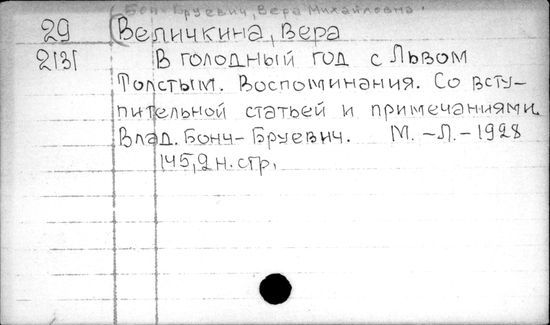 (Бонч-Бруевич, Вера Михайловна.
29 Величкина, Вера
2131 В голодный год с Львом
Толстым. Воспоминания. Со всту-
пительной статьей и примечаниями
Влад. Бонч-Бруевич. М.-Л.-1928
145,2 н. стр.